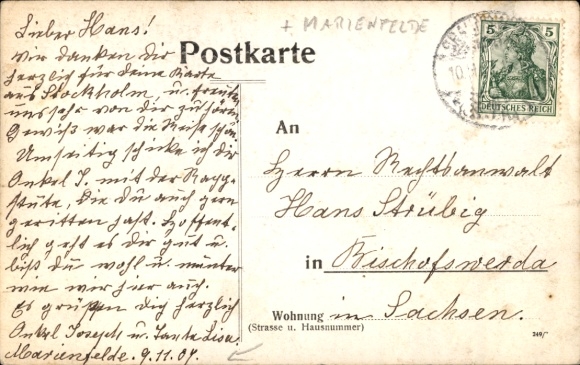 + MARIENFELDE
Postkarte
5 5
DEUTSCHES REICH
Lieber Hans!
wir danken dir
herzlich für deine Karte
aus Stockholm, u. freuten
uns sehr von dir zu hören.
Gewiß war die Reise schön.
Umseitig schicke ich dir
Onkel J. mit der Rapp-
stute, die du auch gern
geritten hast. Hoffent-
lich geht es dir gut u.
bist du wohl u. munter
wie wir hier auch.
Es grüßen dich herzlich
Onkel Joseph u. Tante Lisa
Marienfelde. 9.11.07.
An
Herrn Rechtsanwalt
Hans Strübig
in Bischofswerda
Wohnung in Sachsen.
(Straße u. Hausnummer)